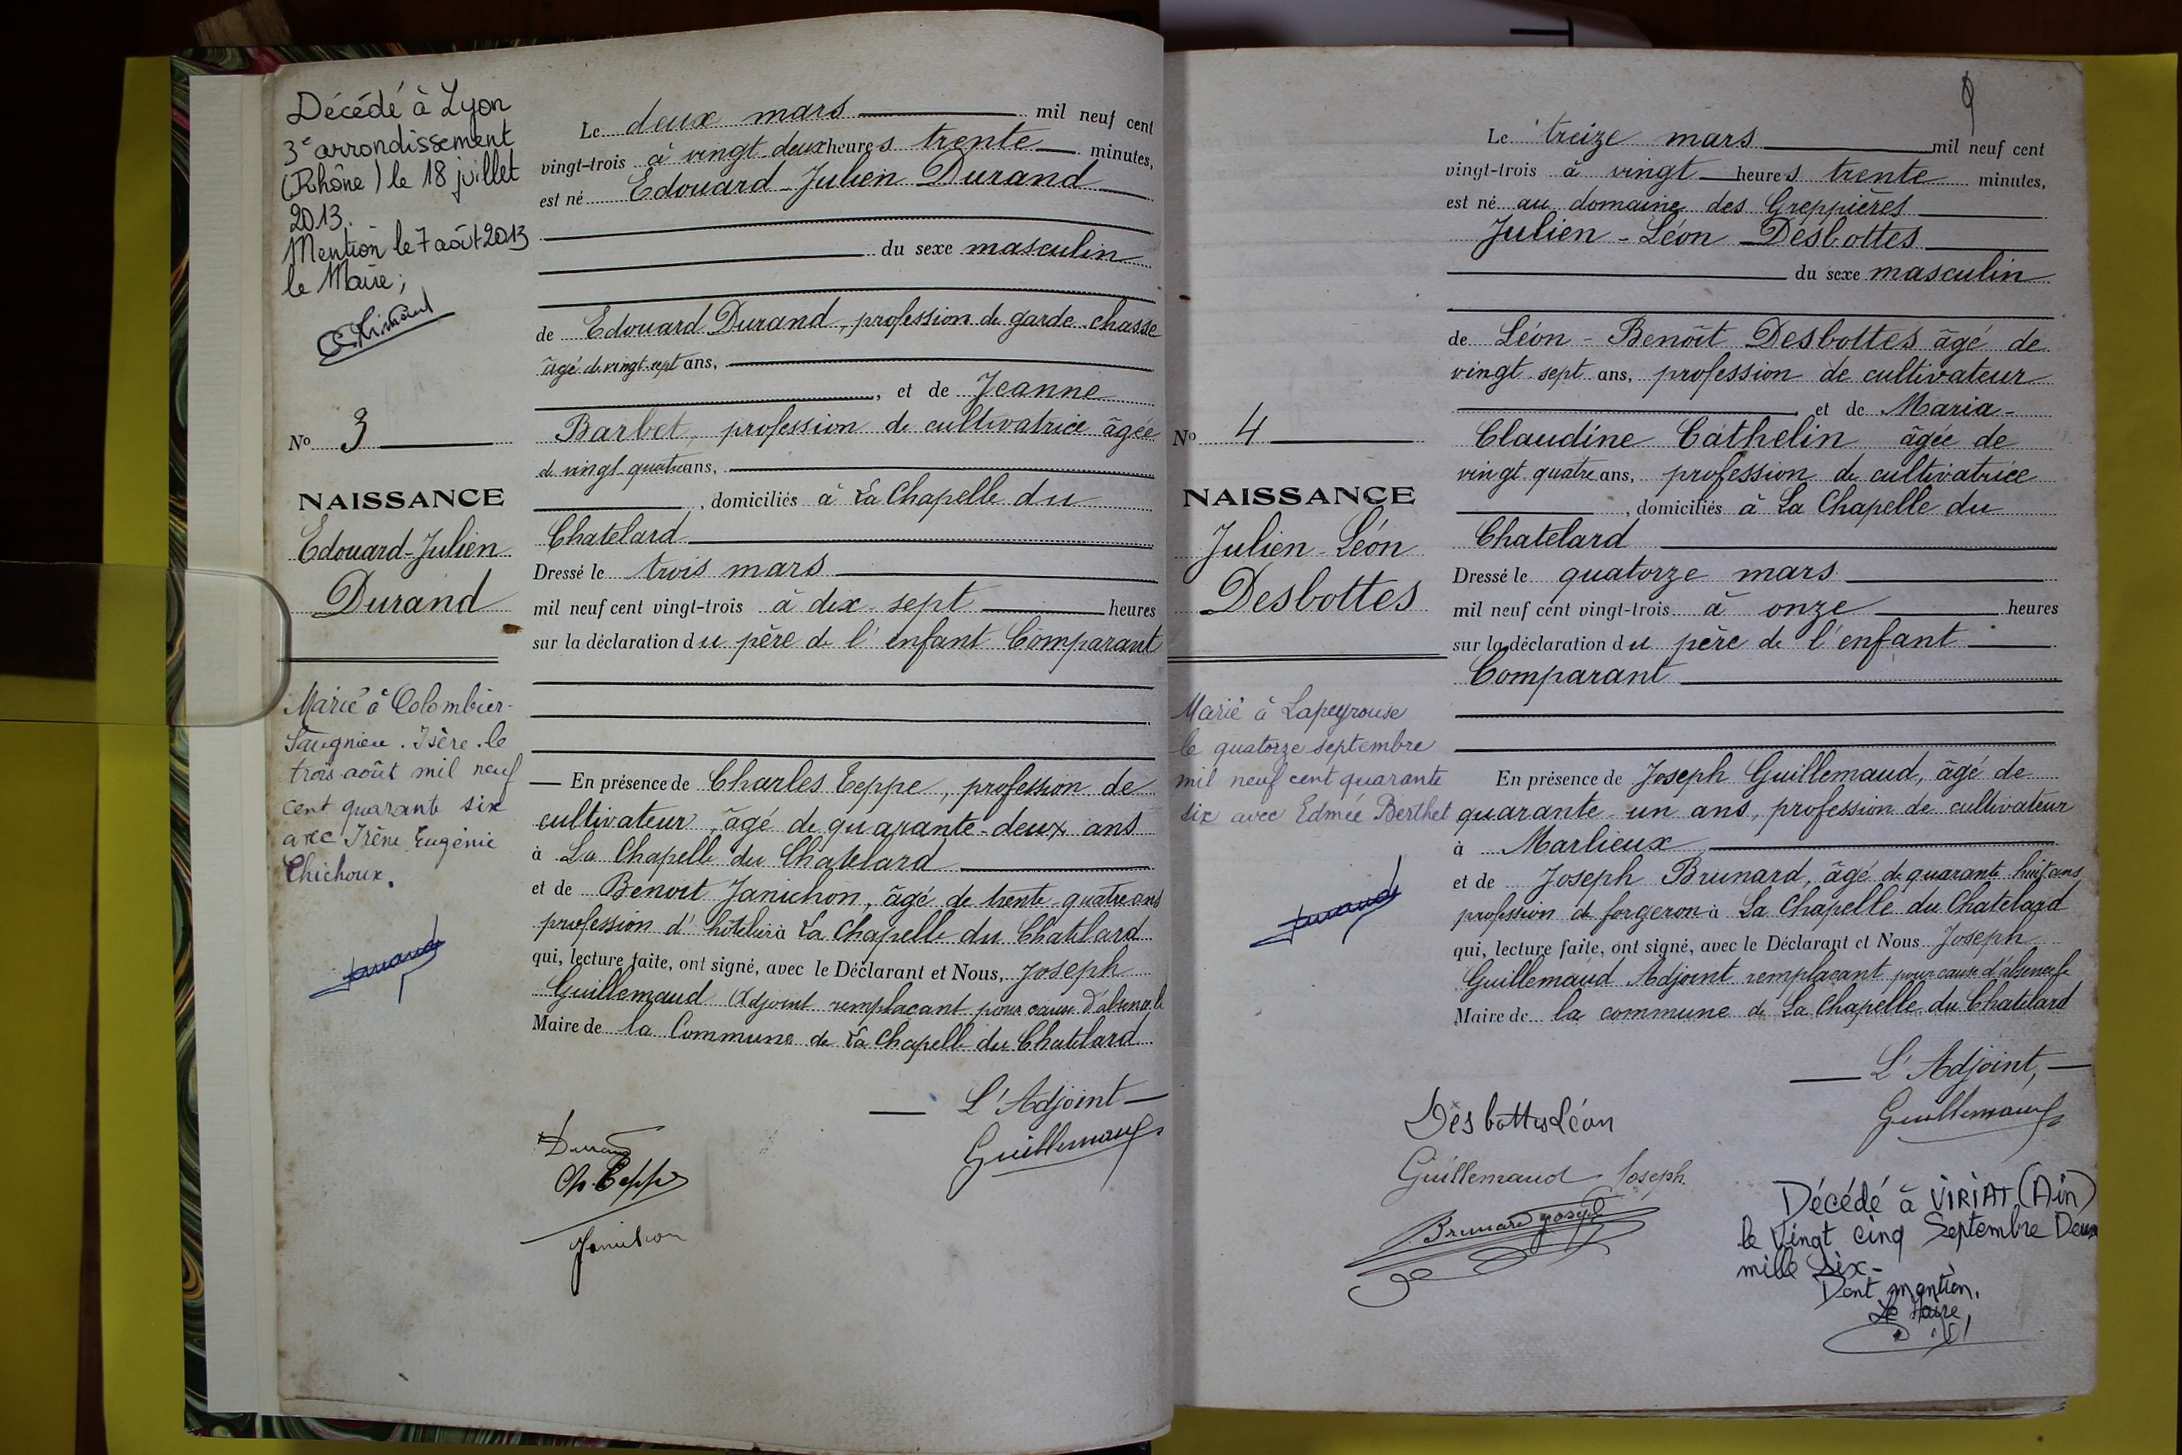 Décédé à Lyon
3e arrondissement
(Rhône) le 18 juillet
2013.
Mention le 7 août 2013
le Maire;
No 3
NAISSANCE
Edouard-Julien
Durand
Marié à Colombier-
Saugnieu. Isère. le
trois août mil neuf
cent quarante six
avec Irène Eugénie
Chichoux.
Le deux mars mil neuf cent
vingt-trois à vingt-deux heures trente minutes,
est né Edouard-Julien Durand
du sexe masculin
de Edouard Durand, profession de garde-chasse
âgé de vingt-sept ans,
, et de Jeanne
Barbet, profession de cultivatrice âgée
de vingt-quatre ans,
, domiciliés à La Chapelle du
Chatelard
Dressé le trois mars
mil neuf cent vingt-trois à dix-sept heures
sur la déclaration du père de l'enfant Comparant
En présence de Charles Teppe, profession de
cultivateur, âgé de quarante-deux ans
à La Chapelle du Chatelard
et de Benoit Janichon, âgé de trente-quatre ans
profession d'hôtelier à La Chapelle du Chatelard
qui, lecture faite, ont signé, avec le Déclarant et Nous, Joseph
Guillemaud Adjoint remplaçant pour cause d'absence le
Maire de la Commune de La Chapelle du Chatelard
L'Adjoint
Guillemaud
Durand
Ch. Teppe
Janichon
9
No 4
NAISSANCE
Julien-Léon
Desbottes
Marié à Lapeyrouse
le quatorze septembre
mil neuf cent quarante
six avec Edmée Berthet
Le treize mars mil neuf cent
vingt-trois à vingt heures trente minutes,
est né au domaine des Greppières
Julien-Léon Desbottes
du sexe masculin
de Léon-Benoît Desbottes âgé de
vingt-sept ans, profession de cultivateur
, et de Maria-
Claudine Cathelin âgée de
vingt-quatre ans, profession de cultivatrice
, domiciliés à La Chapelle du
Chatelard
Dressé le quatorze mars
mil neuf cent vingt-trois à onze heures
sur la déclaration du père de l'enfant
Comparant
En présence de Joseph Guillemaud, âgé de
quarante-un ans, profession de cultivateur
à Marlieux
et de Joseph Brunard, âgé de quarante-huit ans
profession de forgeron à La Chapelle du Chatelard
qui, lecture faite, ont signé, avec le Déclarant et Nous Joseph
Guillemaud Adjoint remplaçant pour cause d'absence le
Maire de la commune de La Chapelle du Chatelard
L'Adjoint,
Guillemaud
Desbottes Léon
Guillemaud Joseph
Brunard Joseph
Décédé à VIRIAT (Ain)
le Vingt cinq Septembre Deux
mille six-
Dont mention.
Le Maire,